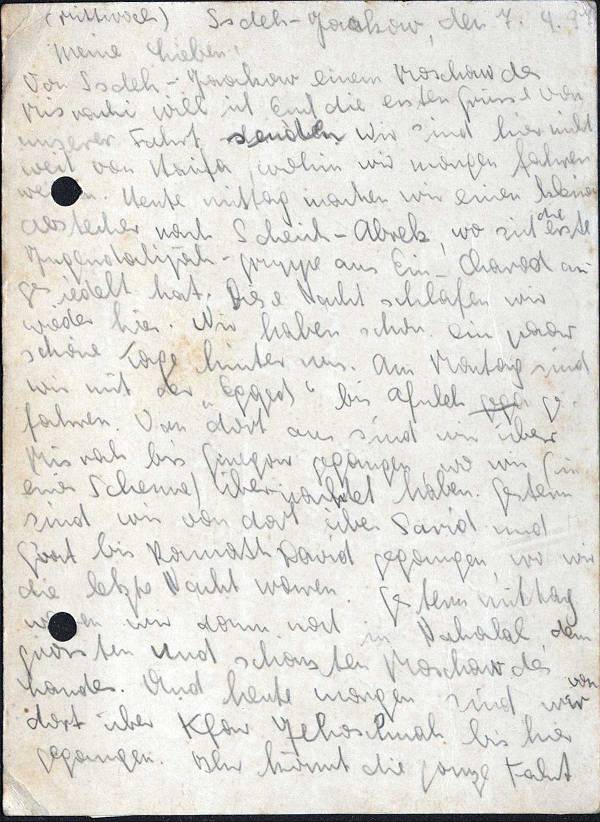 (Mittwoch) Ssdeh-Jaakow, den 7. 4. 
Meine Lieben!
Von Ssdeh-Jaakow einem Moschaw des
Misrachi will ich Euch die ersten Grüsse von
unserer Fahrt senden. Wir sind hier nicht
weit von Haifa wohin wir morgen fahren
werden. Heute mittag machen wir einen kleinen
abstecher nach Scheich-Abrek, wo sich die erste
Jugendalijah-gruppe aus Ein-Charod an
gesiedelt hat. Diese Nacht schlafen wir
wieder hier. Wir haben schon ein paar
schöne Tage hinter uns. Am Montag sind
wir mit der "Egged" bis Afuleh ge-
fahren. Von dort aus sind wir über
Misrah bis Ginegar gegangen, wo wir (in
einer Scheune) übernachtet haben. Gestern
sind wir von dort über Sarid und
Gwat bis Ramath David gegangen, wo wir
die letzte Nacht waren. Gestern mittag
waren wir dann noch in Nahalal, dem
grössten und schönsten Moschaw des
Landes. Und heute morgen sind wir von
dort über Kfar Jehoschuah bis hier
gegangen. Ihr könnt die ganze Fahrt